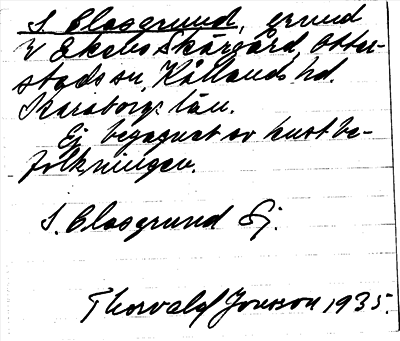 S. Clasgrund, grund
V Ekebo Skärgård, Otter-
stads sn, Kållands hd.
Skaraborgs län.
Ej begagnat av kustbe-
folkningen.
S. Clasgrund Sj.
Thorvald Jonsson 1935.